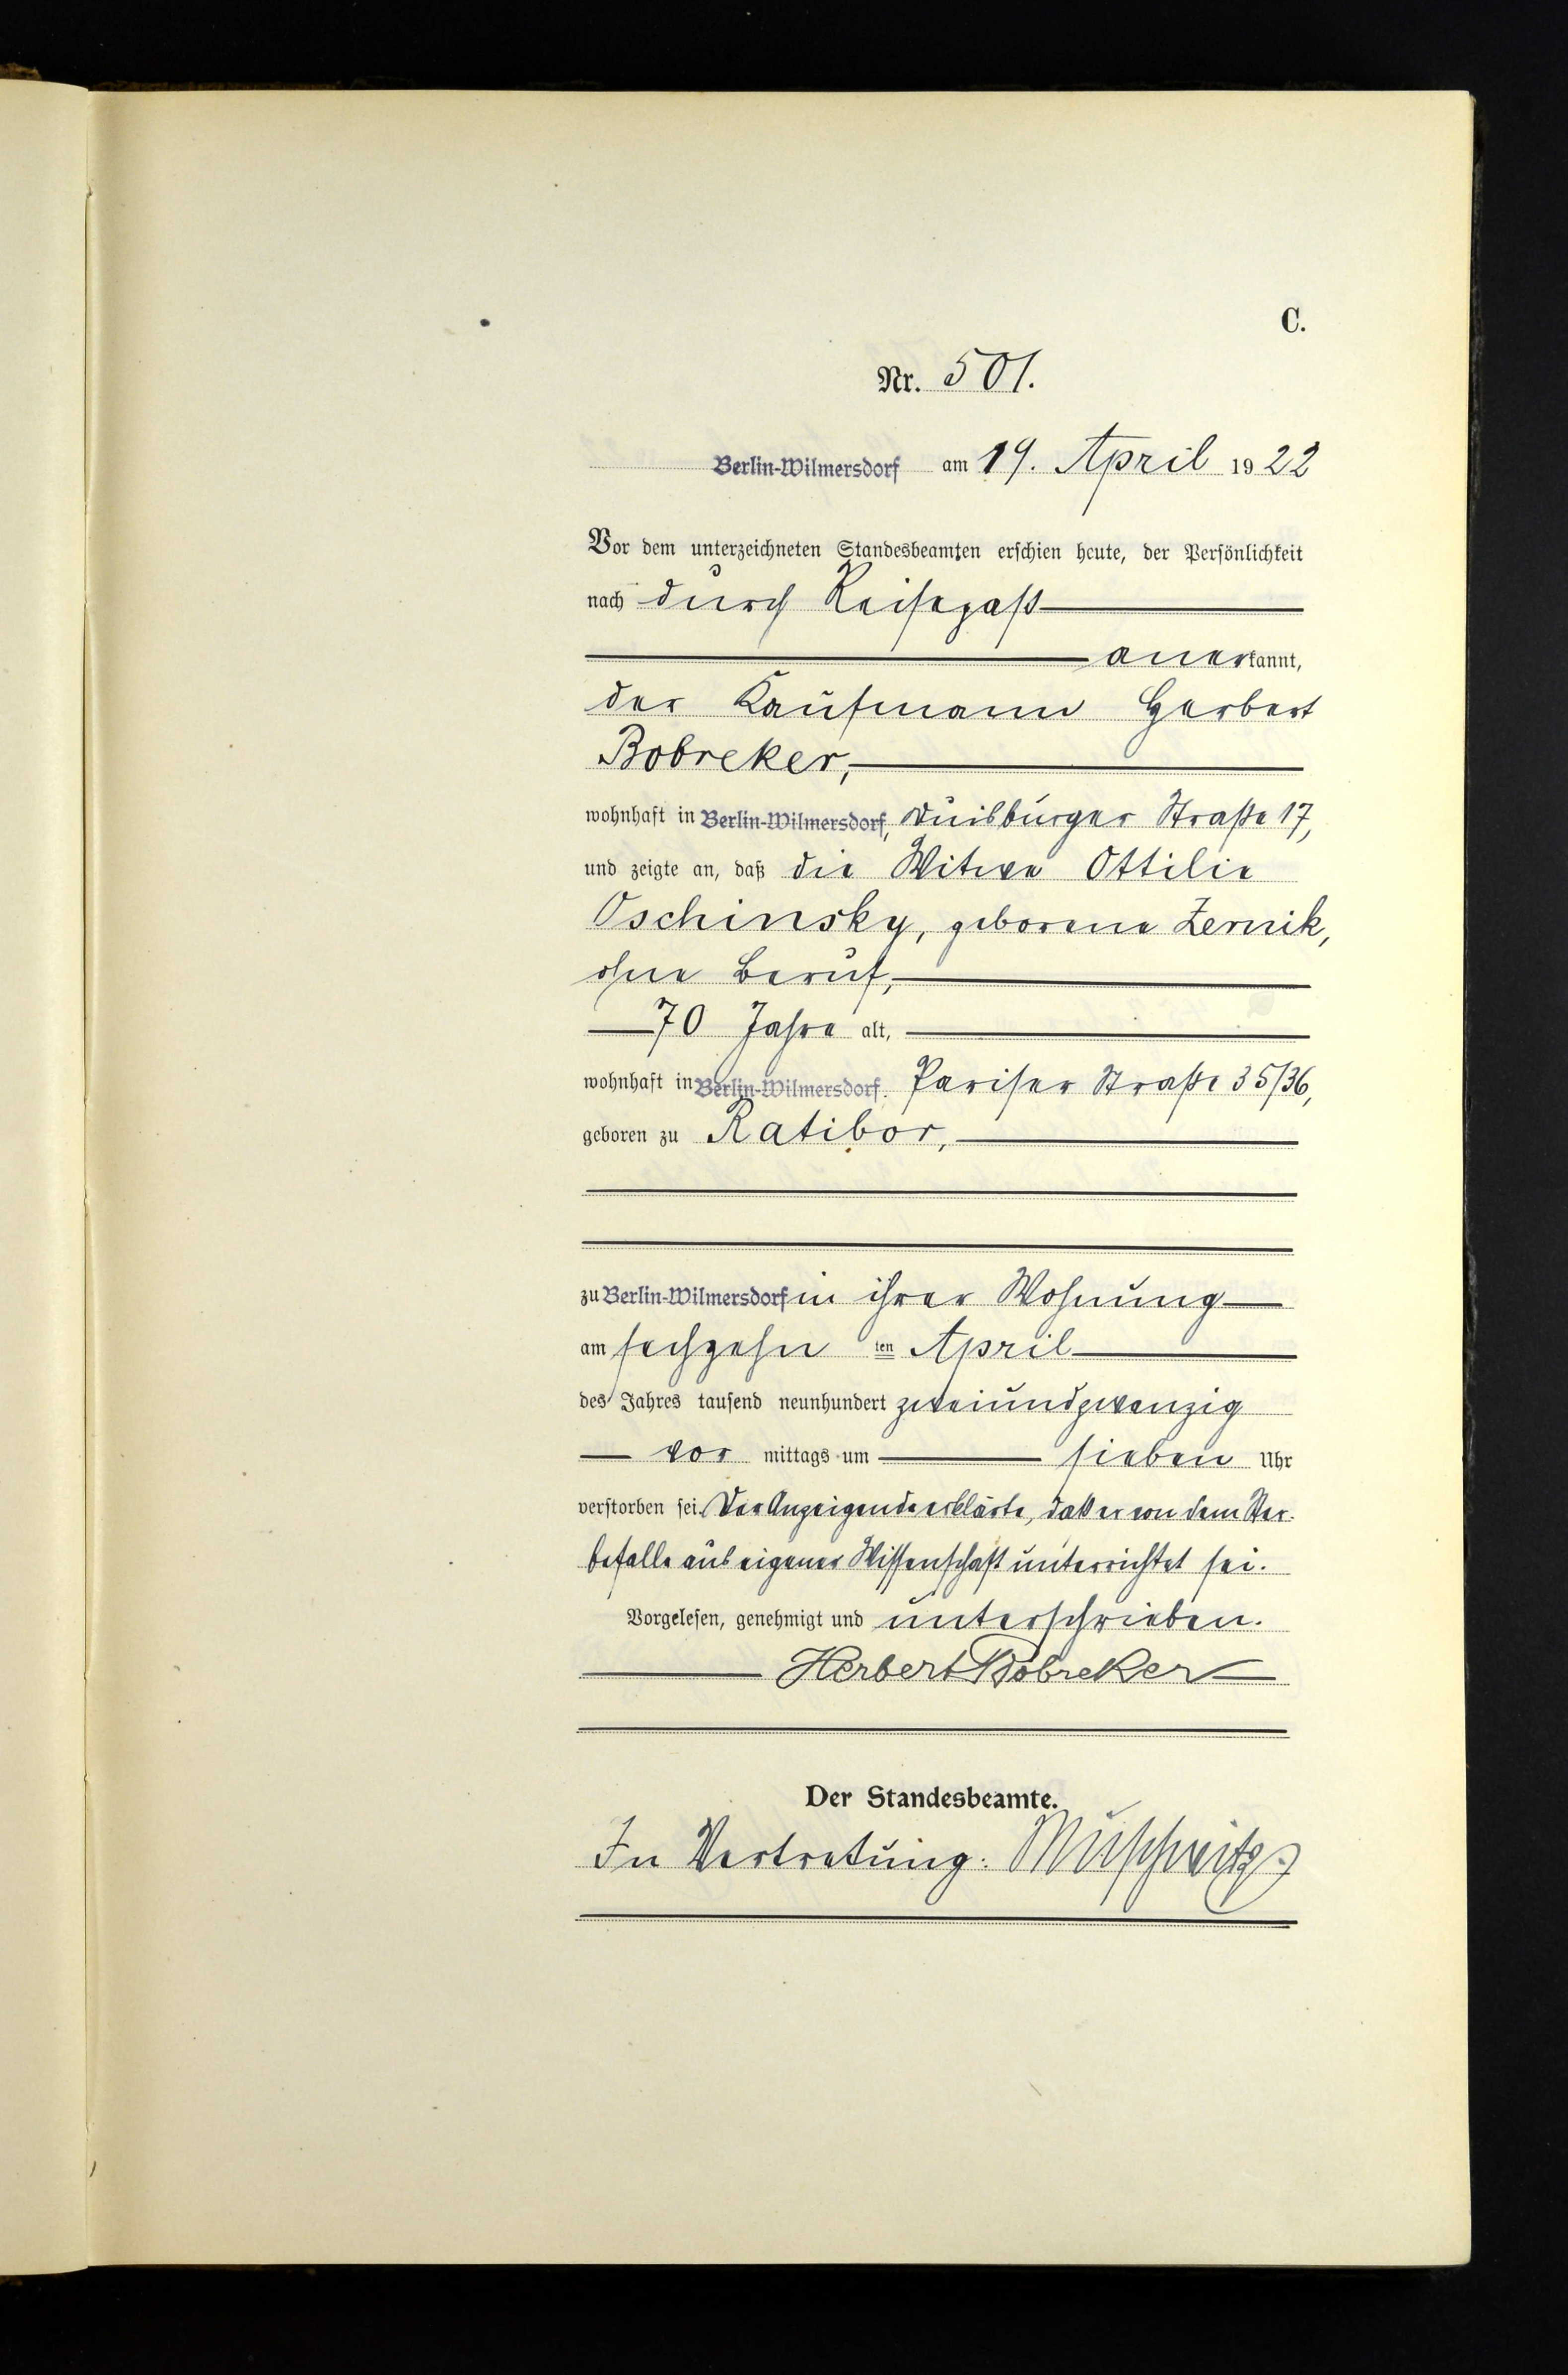 C.
Nr. 501.
Berlin-Wilmersdorf am 19. April 1922
Vor dem unterzeichneten Standesbeamten erschien heute, der Persönlichkeit
nach durch Reisepaß
anerkannt,
der Kaufmann Herbert
Bobreker,
wohnhaft in Berlin-Wilmersdorf, Duisburger Straße 17,
und zeigte an, daß die Witwe Ottilie
Oschinsky, geborene Zernik,
ohne Beruf,
70 Jahre alt,
wohnhaft in Berlin-Wilmersdorf. Pariser Straße 35/36,
geboren zu Ratibor,
zu Berlin-Wilmersdorf in ihrer Wohnung
am sechzehn ten April
des Jahres tausend neunhundert zweiundzwanzig
vor mittags um sieben Uhr
verstorben sei. Der Anzeigende erklärte, daß er von dem Ster-
befalle aus eigener Wissenschaft unterrichtet sei.
Vorgelesen, genehmigt und unterschrieben.
Herbert Bobreker
Der Standesbeamte.
In Vertretung: